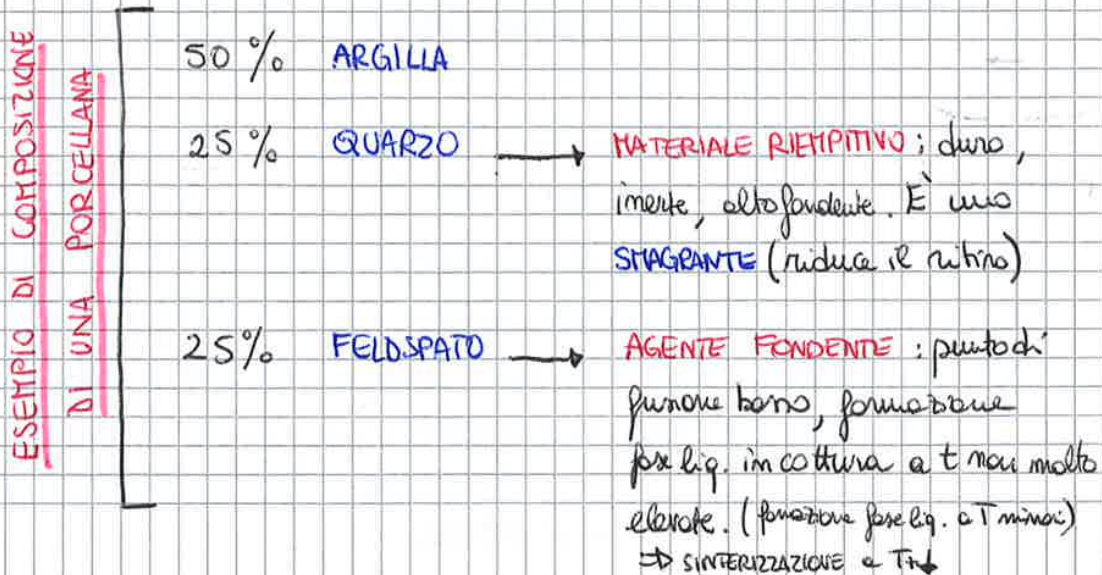 ESEMPIO DI COMPOSIZIONE
DI UNA PORCELLANA
50 % ARGILLA
25 % QUARZO → MATERIALE RIEMPITIVO ; duro,
inerte, altofondente. È uno
SMAGRANTE (riduce il ritiro)
25% FELDSPATO → AGENTE FONDENTE : punto di
fusione basso, formazione
fase liq. in cottura a t non molto
elevate. (formazione fase liq. a T minori)
⇒ SINTERIZZAZIONE a T↓